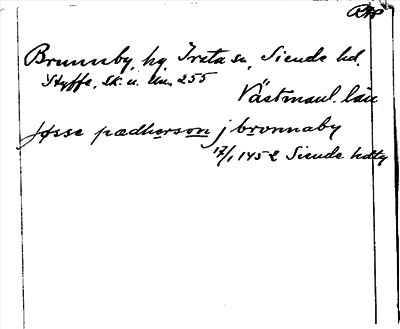 RAP
Brunnby, hg. Irsta sn, Siende hd.
Styffe, Sk. u. Un. 255
Västmanl. län
Jssse pædherson j bronnaby
17/1 1452 Siende hdtg